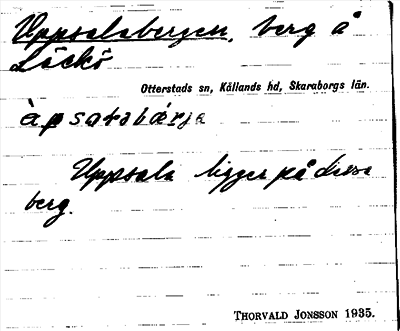 Uppsalabergen, berg å
Läckö
Otterstads sn, Kållands hd, Skaraborgs län.
àpsatabárja
Uppsala ligger på dessa
berg.
THORVALD JONSSON 1935.